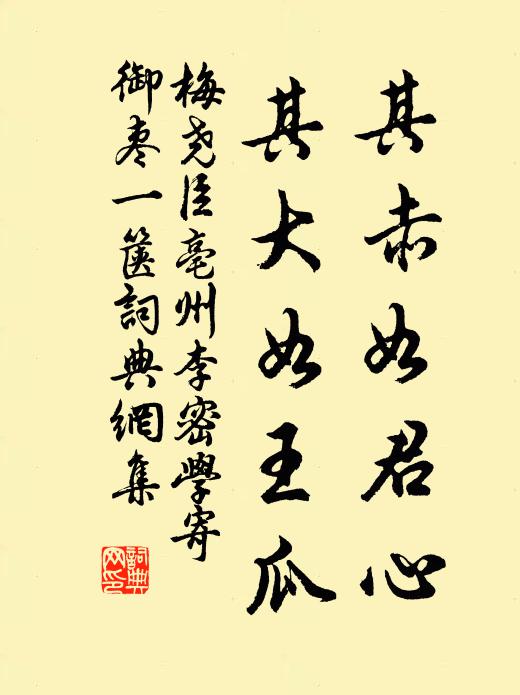 其赤如君心
其大如王瓜
梅尧臣亳州李密學寄
御枣一箧詞典網集
詞典
网印